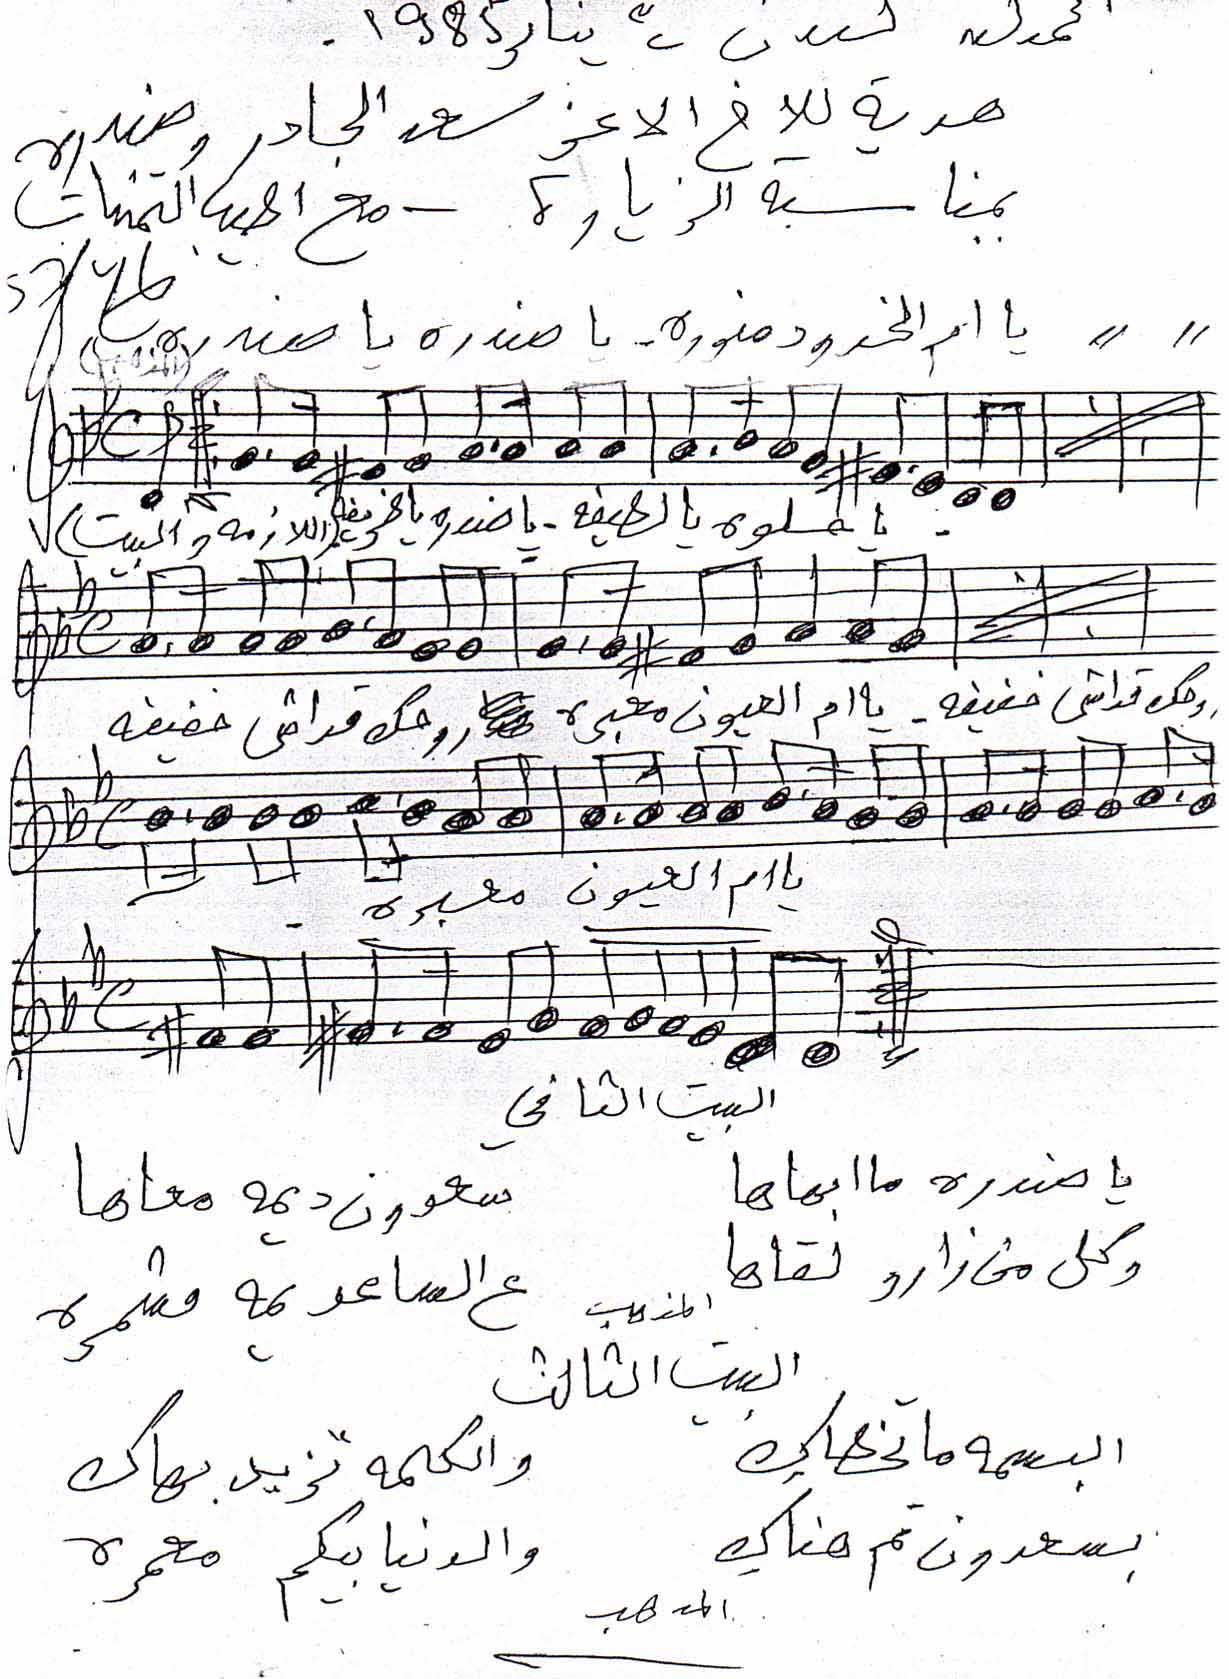 لندن يناير 1985.
هدية للاخ الاعز سعد الجادر وصندره
بمناسبة الزيارة – مع اطيب التمنيات
يا ام الخدود منوره - يا صندره يا صندره " "
(المذهب)
يا حلوه يا لطيفه - يا صندره يا ظريفه (اللازمه والبيت)
روحك قداش خفيفه - يا ام العيون معبره روحك قداش خفيفه
يا ام العيون معبره
البيت الثاني
يا صندره ما ابهاها سعدون ديمه معاها
وكل من زارو لقاها ع الساعد يمه مشمره
المذهب
البيت الثالث
البسمه ما تخطاك والكلمه تزيد بهاك
بسعدون تم هناك والدنيا بيكم معمره
المذهب